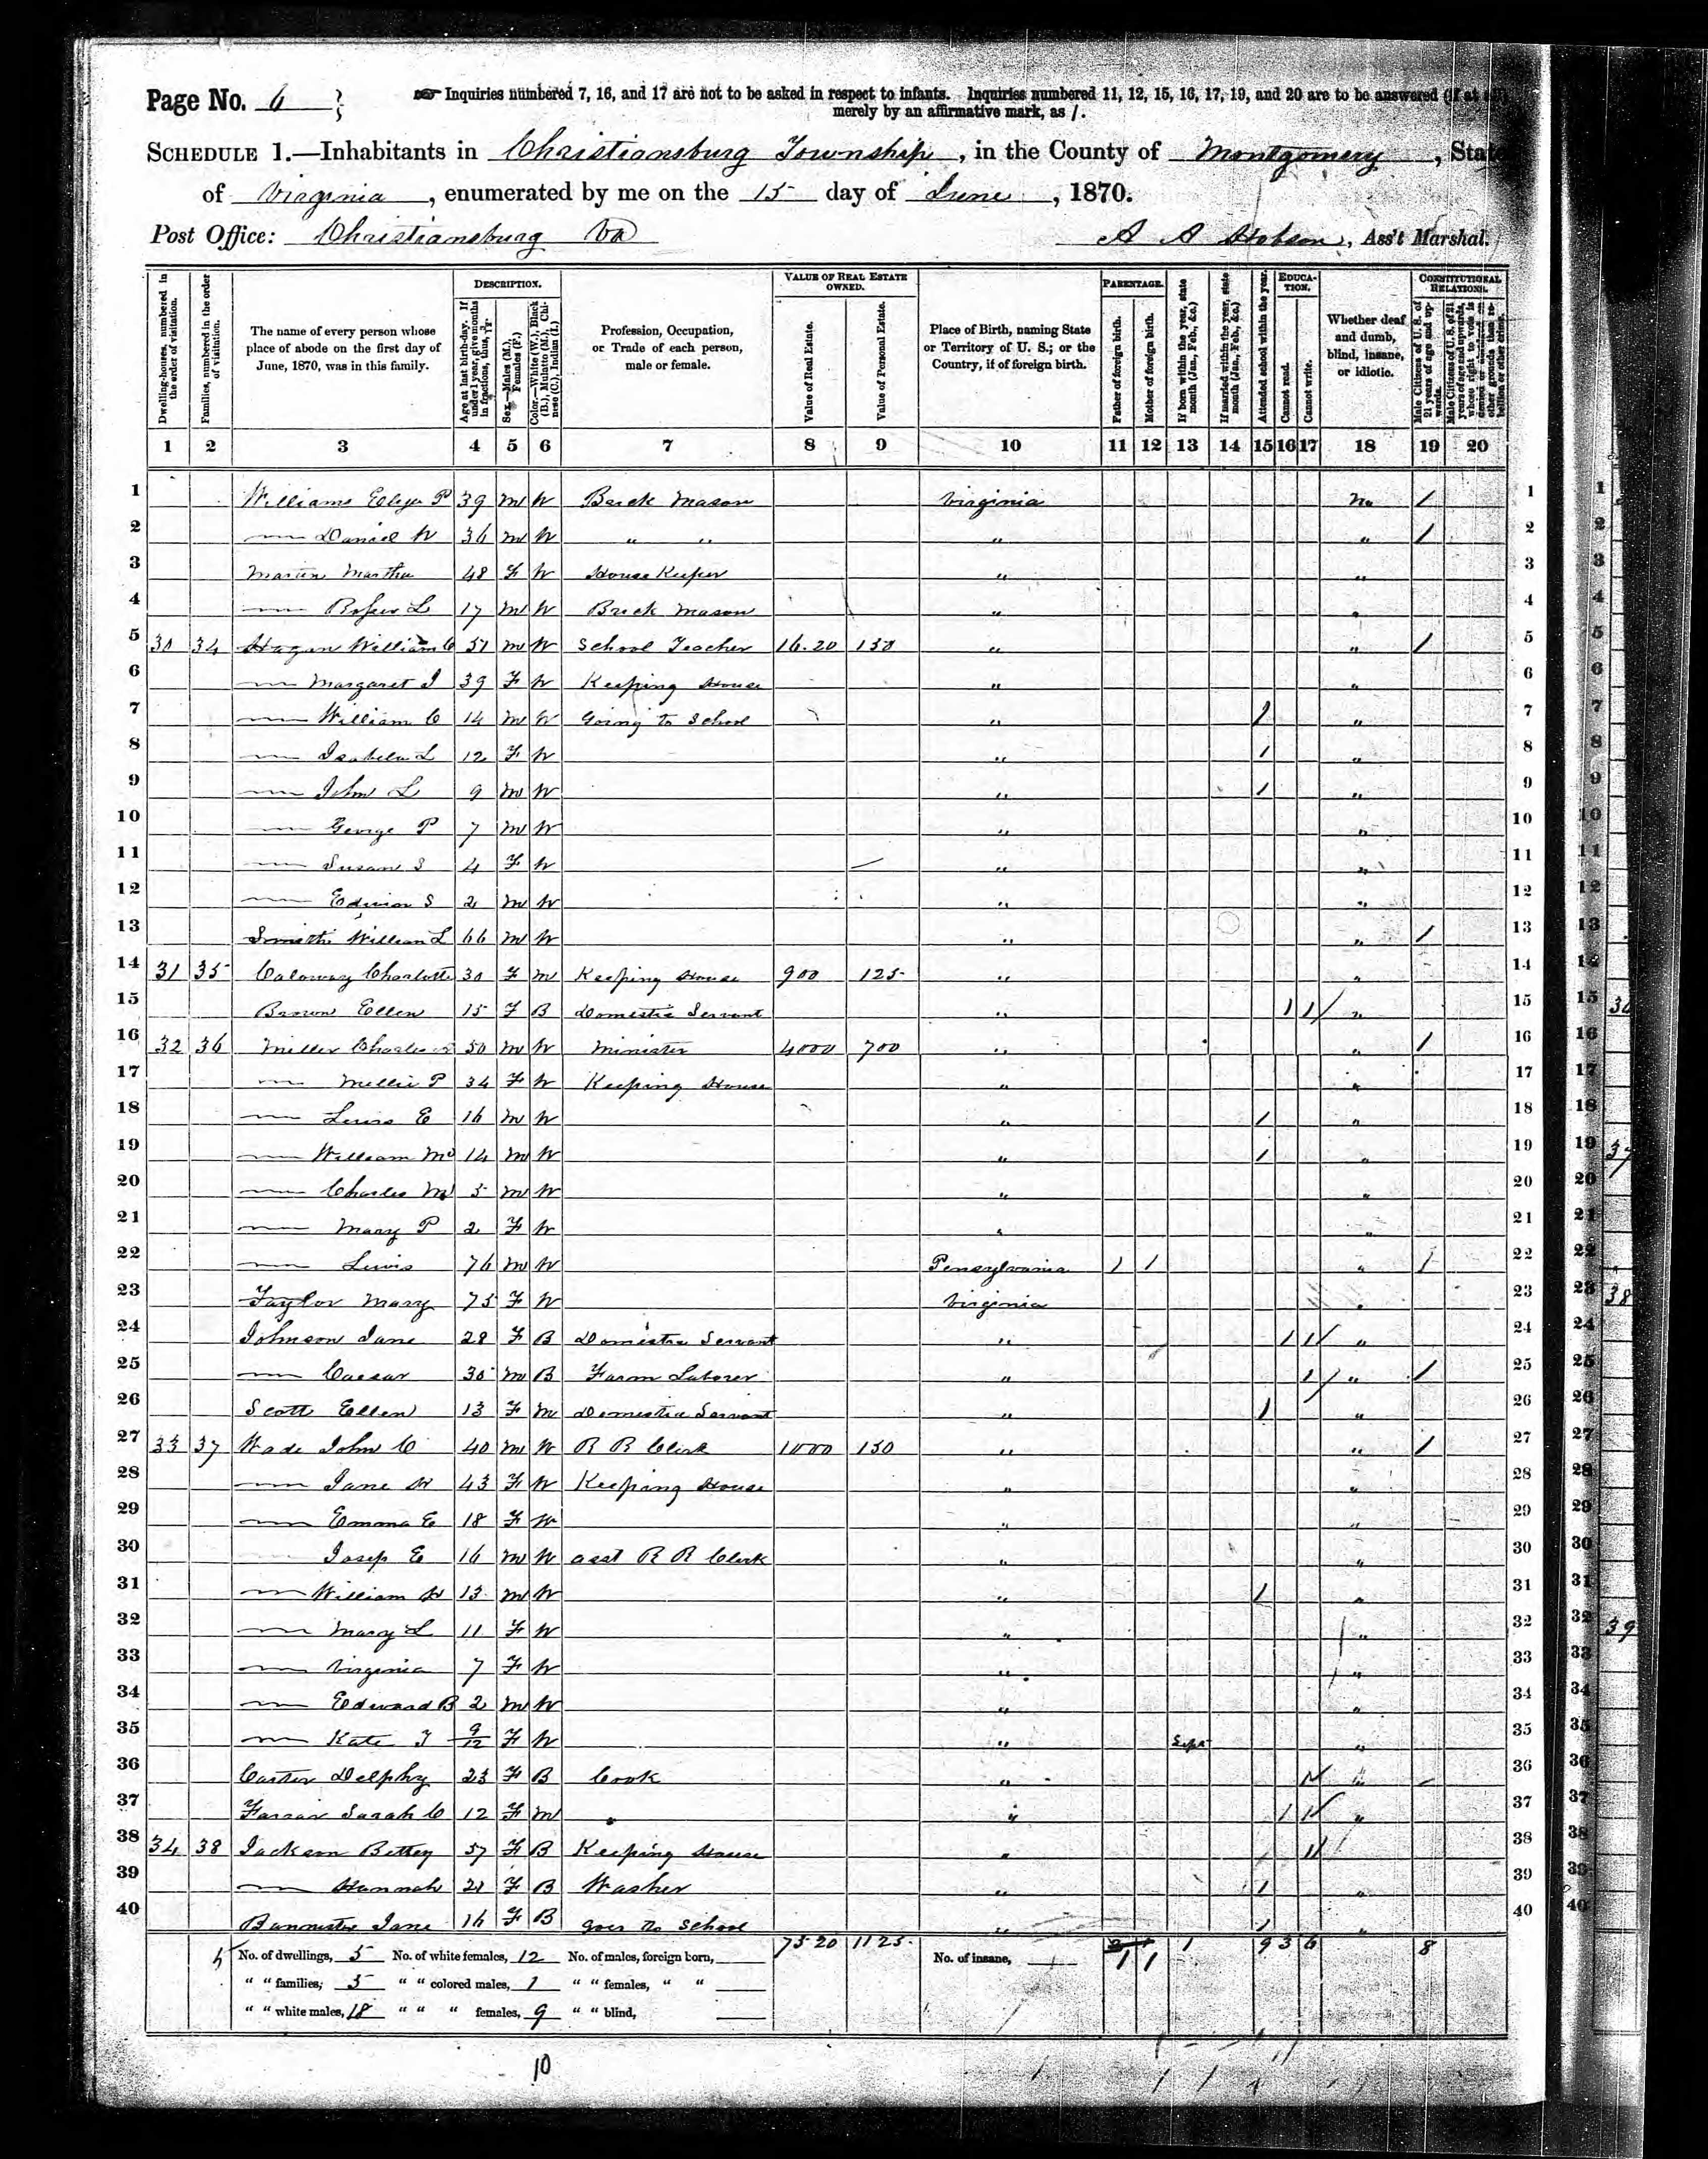 Page No. 6
Inquiries numbered 7, 16, and 17 are not to be asked in respect to infants. Inquiries numbered 11, 12, 15, 16, 17, 19, and 20 are to be answered (if at all)
merely by an affirmative mark, as /.
SCHEDULE 1.—Inhabitants in Christiansburg Township, in the County of Montgomery, State
of Virginia, enumerated by me on the 15 day of June, 1870.
Post Office: Christiansburg Va A A Hobson, Ass't Marshal.
DESCRIPTION. VALUE OF REAL ESTATE OWNED. PARENTAGE. EDUCATION. CONSTITUTIONAL RELATIONS.
Dwelling-houses, numbered in the order of visitation.
Families, numbered in the order of visitation.
The name of every person whose place of abode on the first day of June, 1870, was in this family.
Age at last birth-day. If under 1 year, give months in fractions, thus,
Sex.—Males (M.), Females (F.)
Color.—White (W.), Black (B.), Mulatto (M.), Chinese (C.), Indian (I.)
Profession, Occupation, or Trade of each person, male or female.
Value of Real Estate.
Value of Personal Estate.
Place of Birth, naming State or Territory of U. S.; or the Country, if of foreign birth.
Father of foreign birth.
Mother of foreign birth.
If born within the year, state month (Jan., Feb., &c.)
If married within the year, state month (Jan., Feb., &c.)
Attended school within the year.
Cannot read.
Cannot write.
Whether deaf and dumb, blind, insane, or idiotic.
Male Citizens of U. S. of 21 years of age and upwards.
1 2 3 4 5 6 7 8 9 10 11 12 13 14 15 16 17 18 19 20
1 Williams P 39 M W Brick Mason Virginia No / 1
2 — Daniel W 36 M W " " " " / 2
3 Martin Martha 48 F W House Keeper " " 3
4 — L 17 M W Brick Mason " " 4
5 30 34 Hagan William C 51 M W School Teacher 16.20 150 " " / 5
6 — Margaret J 39 F W Keeping House " " 6
7 — William C 14 M W Going to School " / " 7
8 — Isabela L 12 F W " / " 8
9 — John L 9 M W " / " 9
10 — George P 7 M W " " 10
11 — Susan S 4 F W " " 11
12 — S 2 M W " " 12
13 Smith William L 66 M W " " / 13
14 31 35 Caloway Charlotte 30 F M Keeping House 900 125 " " 14
15 Brown Ellen 15 F B Domestic Servant " 1 1/ " 15
16 32 36 Miller Charles 50 M W Minister 4000 700 " " / 16
17 — Millie P 34 F W Keeping House " " 17
18 — Lewis E 16 M W " / " 18
19 — William 14 M W " / " 19
20 — Charles M 5 M W " " 20
21 — Mary P 2 F W " " 21
22 — Lewis 76 M W Pensylvania 1 1 " / 22
23 Taylor Mary 75 F W Virginia " 23
24 Johnson Jane 28 F B Domestic Servant " 1 1/ " 24
25 — Caesar 30 M B Farm Laborer " 1/ " / 25
26 Scott Ellen 13 F M Domestic Servant " / " 26
27 33 37 Wade John C 40 M W R R Clerk 1000 150 " " / 27
28 — Jane H 43 F W Keeping House " " 28
29 — Emma E 18 F W " " 29
30 Josep E 16 M W asst R R Clerk " " 30
31 — William H 13 M W " / " 31
32 — Mary L 11 F W " " 32
33 — Virginia 7 F W " " 33
34 — Edward B 2 M W " " 34
35 — Kate J 9/12 F W " Sept " 35
36 Carter Delphy 23 F B Cook " / " 36
37 Sarah C 12 F M " " 1 1/ " 37
38 34 38 Jackson Bettey 57 F B Keeping House " 38
39 — Hannah 21 F B Washer " / " 39
40 Bannister Jane 16 F B goes to School " / " 40
5 No. of dwellings, 5 No. of white females, 12 No. of males, foreign born, 7520 1125 No. of insane, 1 1 1 9 3 6 8
" " families, 5 " " colored males, 1 " " females, " "
" " white males, 18 " " " females, 9 " " blind,
10